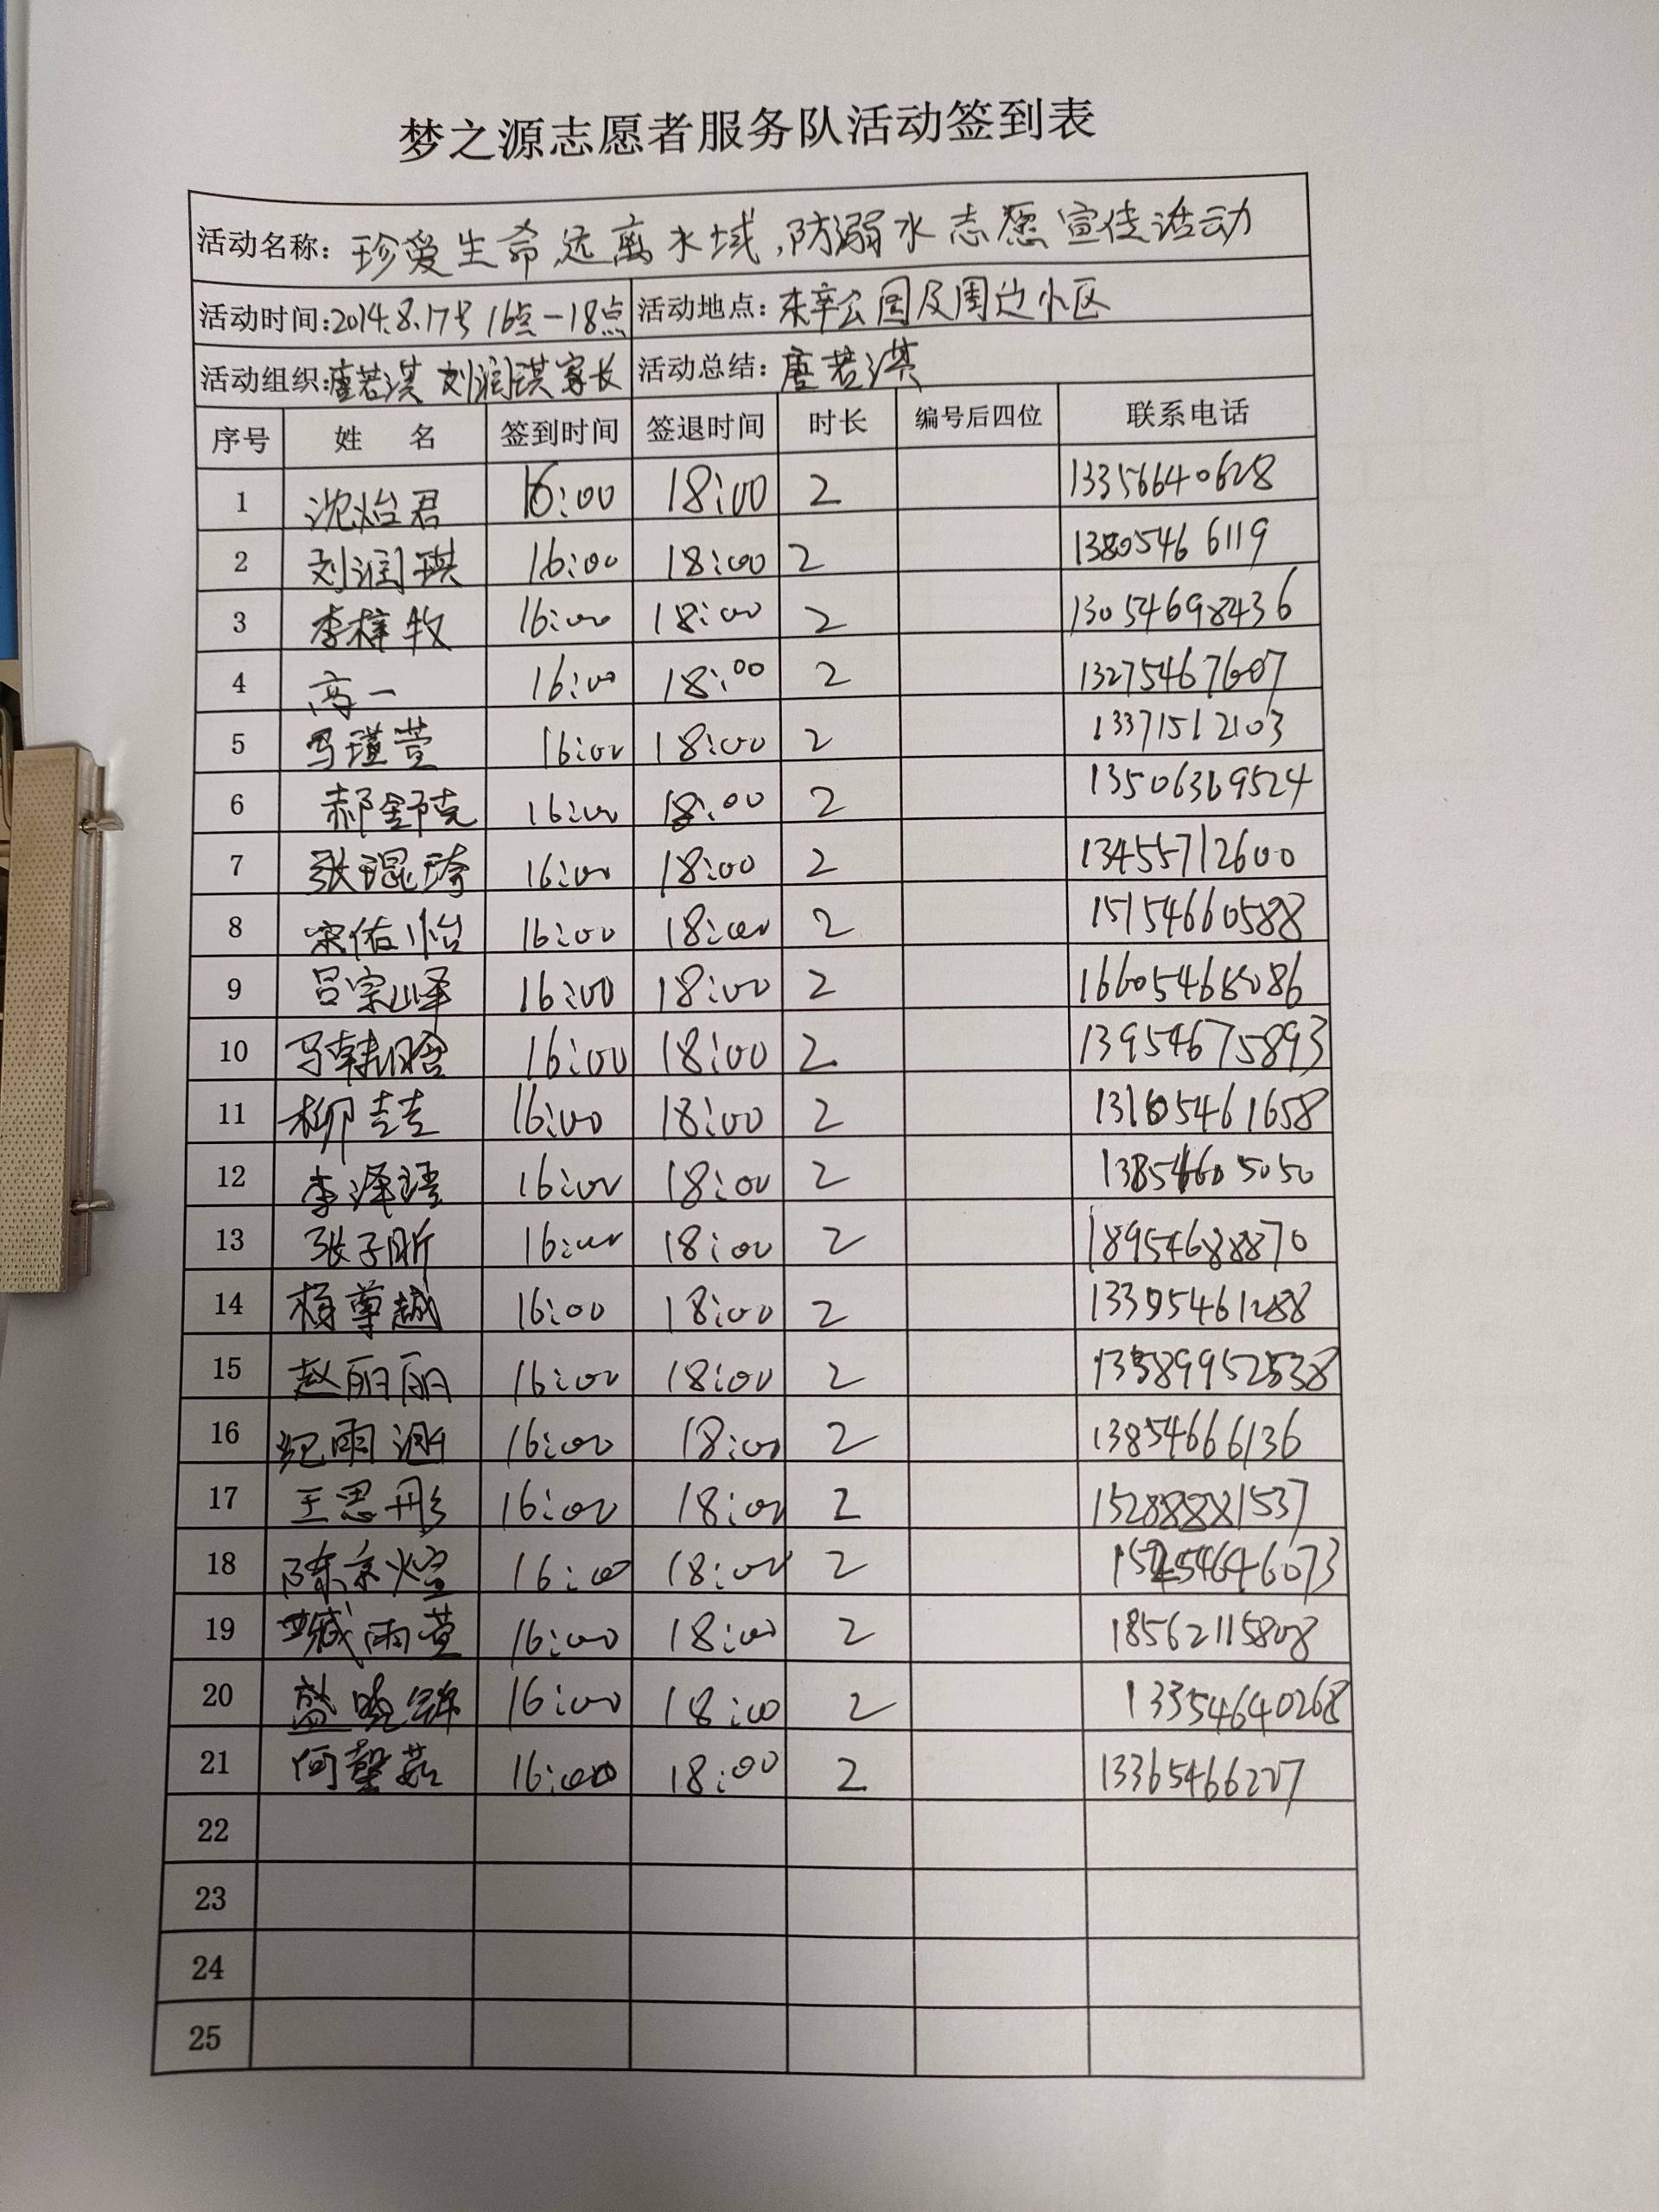 梦之源志愿者服务队活动签到表
活动名称: 珍爱生命远离水域,防溺水志愿宣传活动
活动时间:2014.8.17号 16点-18点 活动地点: 东辛公园及周边小区
活动组织:唐若淇 刘润琪家长 活动总结: 唐若淇
序号 姓 名 签到时间 签退时间 时长 编号后四位 联系电话
1 沈怡君 16:00 18:00 2 13356640628
2 刘润琪 16:00 18:00 2 1380546 6119
3 李梓牧 16:00 18:00 2 13054698436
4 高一 16:00 18:00 2 13275467607
5 马瑾萱 16:00 18:00 2 13371512103
6 郝舒克 16:00 18:00 2 13506369524
7 张琨琦 16:00 18:00 2 13455712600
8 宋佑怡 16:00 18:00 2 15154660588
9 吕宗峄 16:00 18:00 2 16605468086
10 马韩晗 16:00 18:00 2 13954675893
11 柳喆 16:00 18:00 2
12 李泽 16:00 18:00 2 13854605050
13 张子昕 16:00 18:00 2 18954688870
14 杨尊越 16:00 18:00 2 13395461288
15 赵丽丽 16:00 18:00 2
16 纪雨 16:00 18:00 2 13854666136
17 王思彤 16:00 18:00 2 15288881537
18 陈京煊 16:00 18:00 2
19 臧雨萱 16:00 18:00 2 18562115808
20 盐晓 16:00 18:00 2 13354640268
21 何馨茹 16:00 18:00 2 13365466227
22
23
24
25